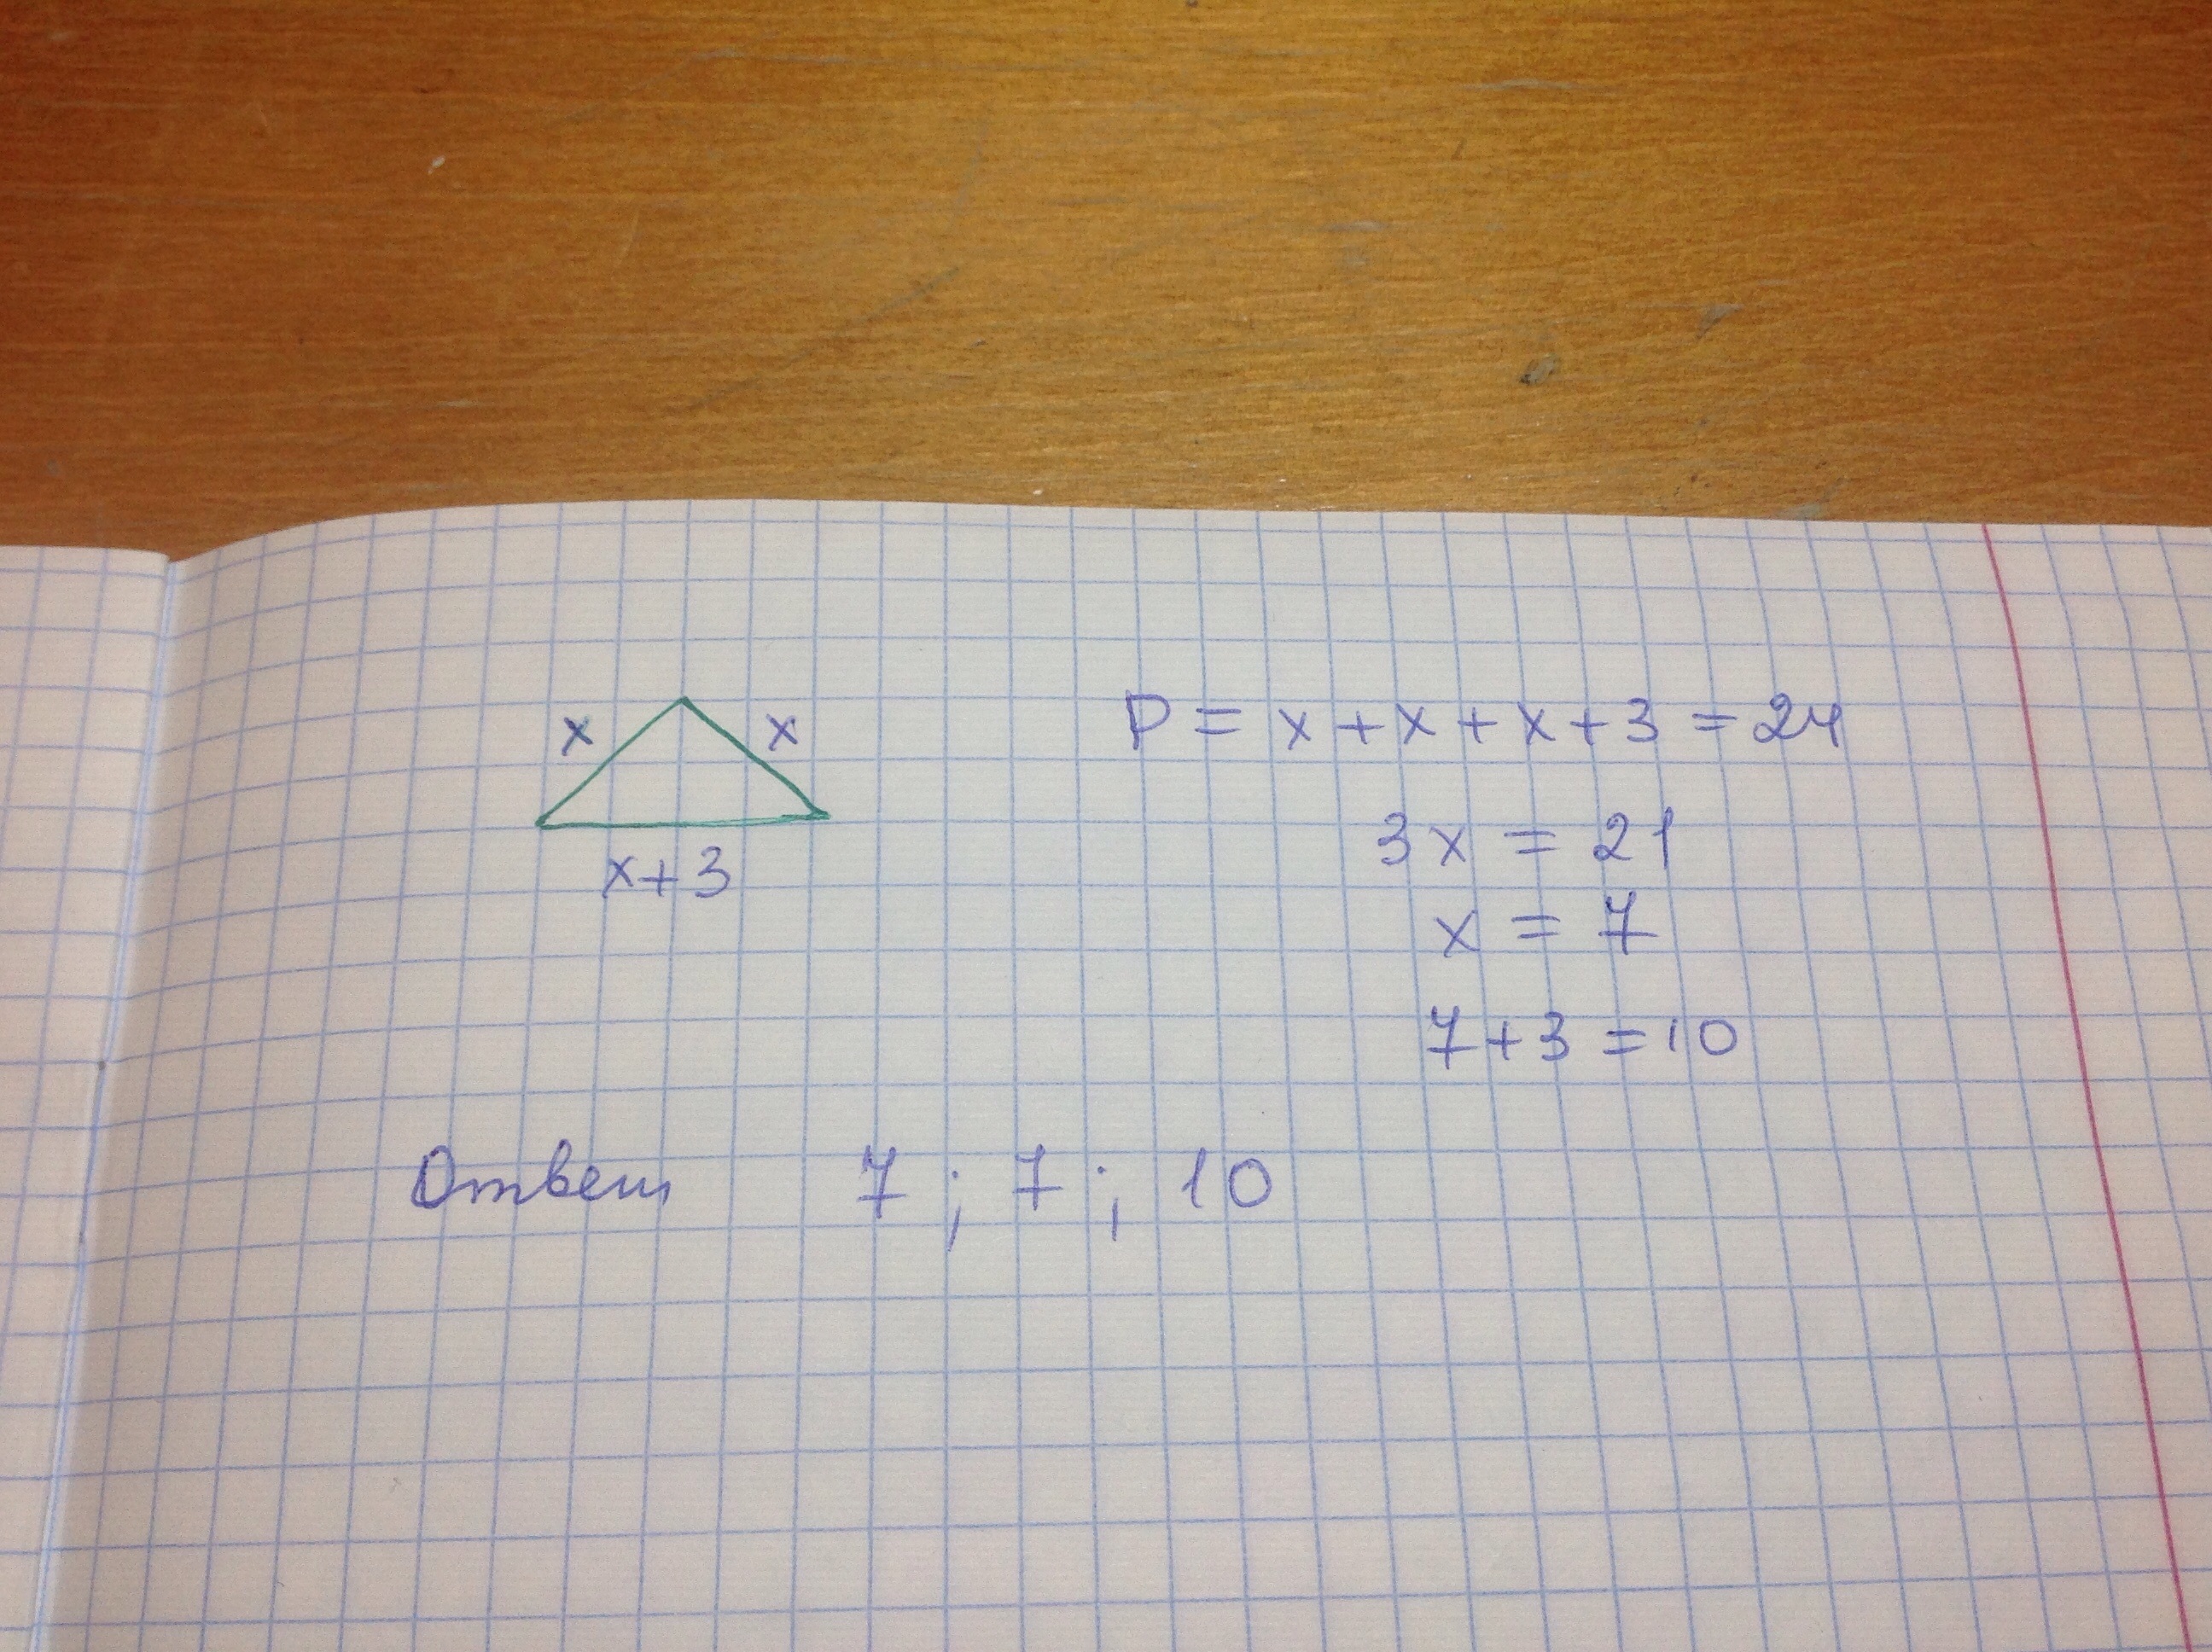 x x
x+3
P = x + x + x + 3 = 24
3x = 21
x = 7
7+3 = 10
Ответ 7 ; 7 ; 10